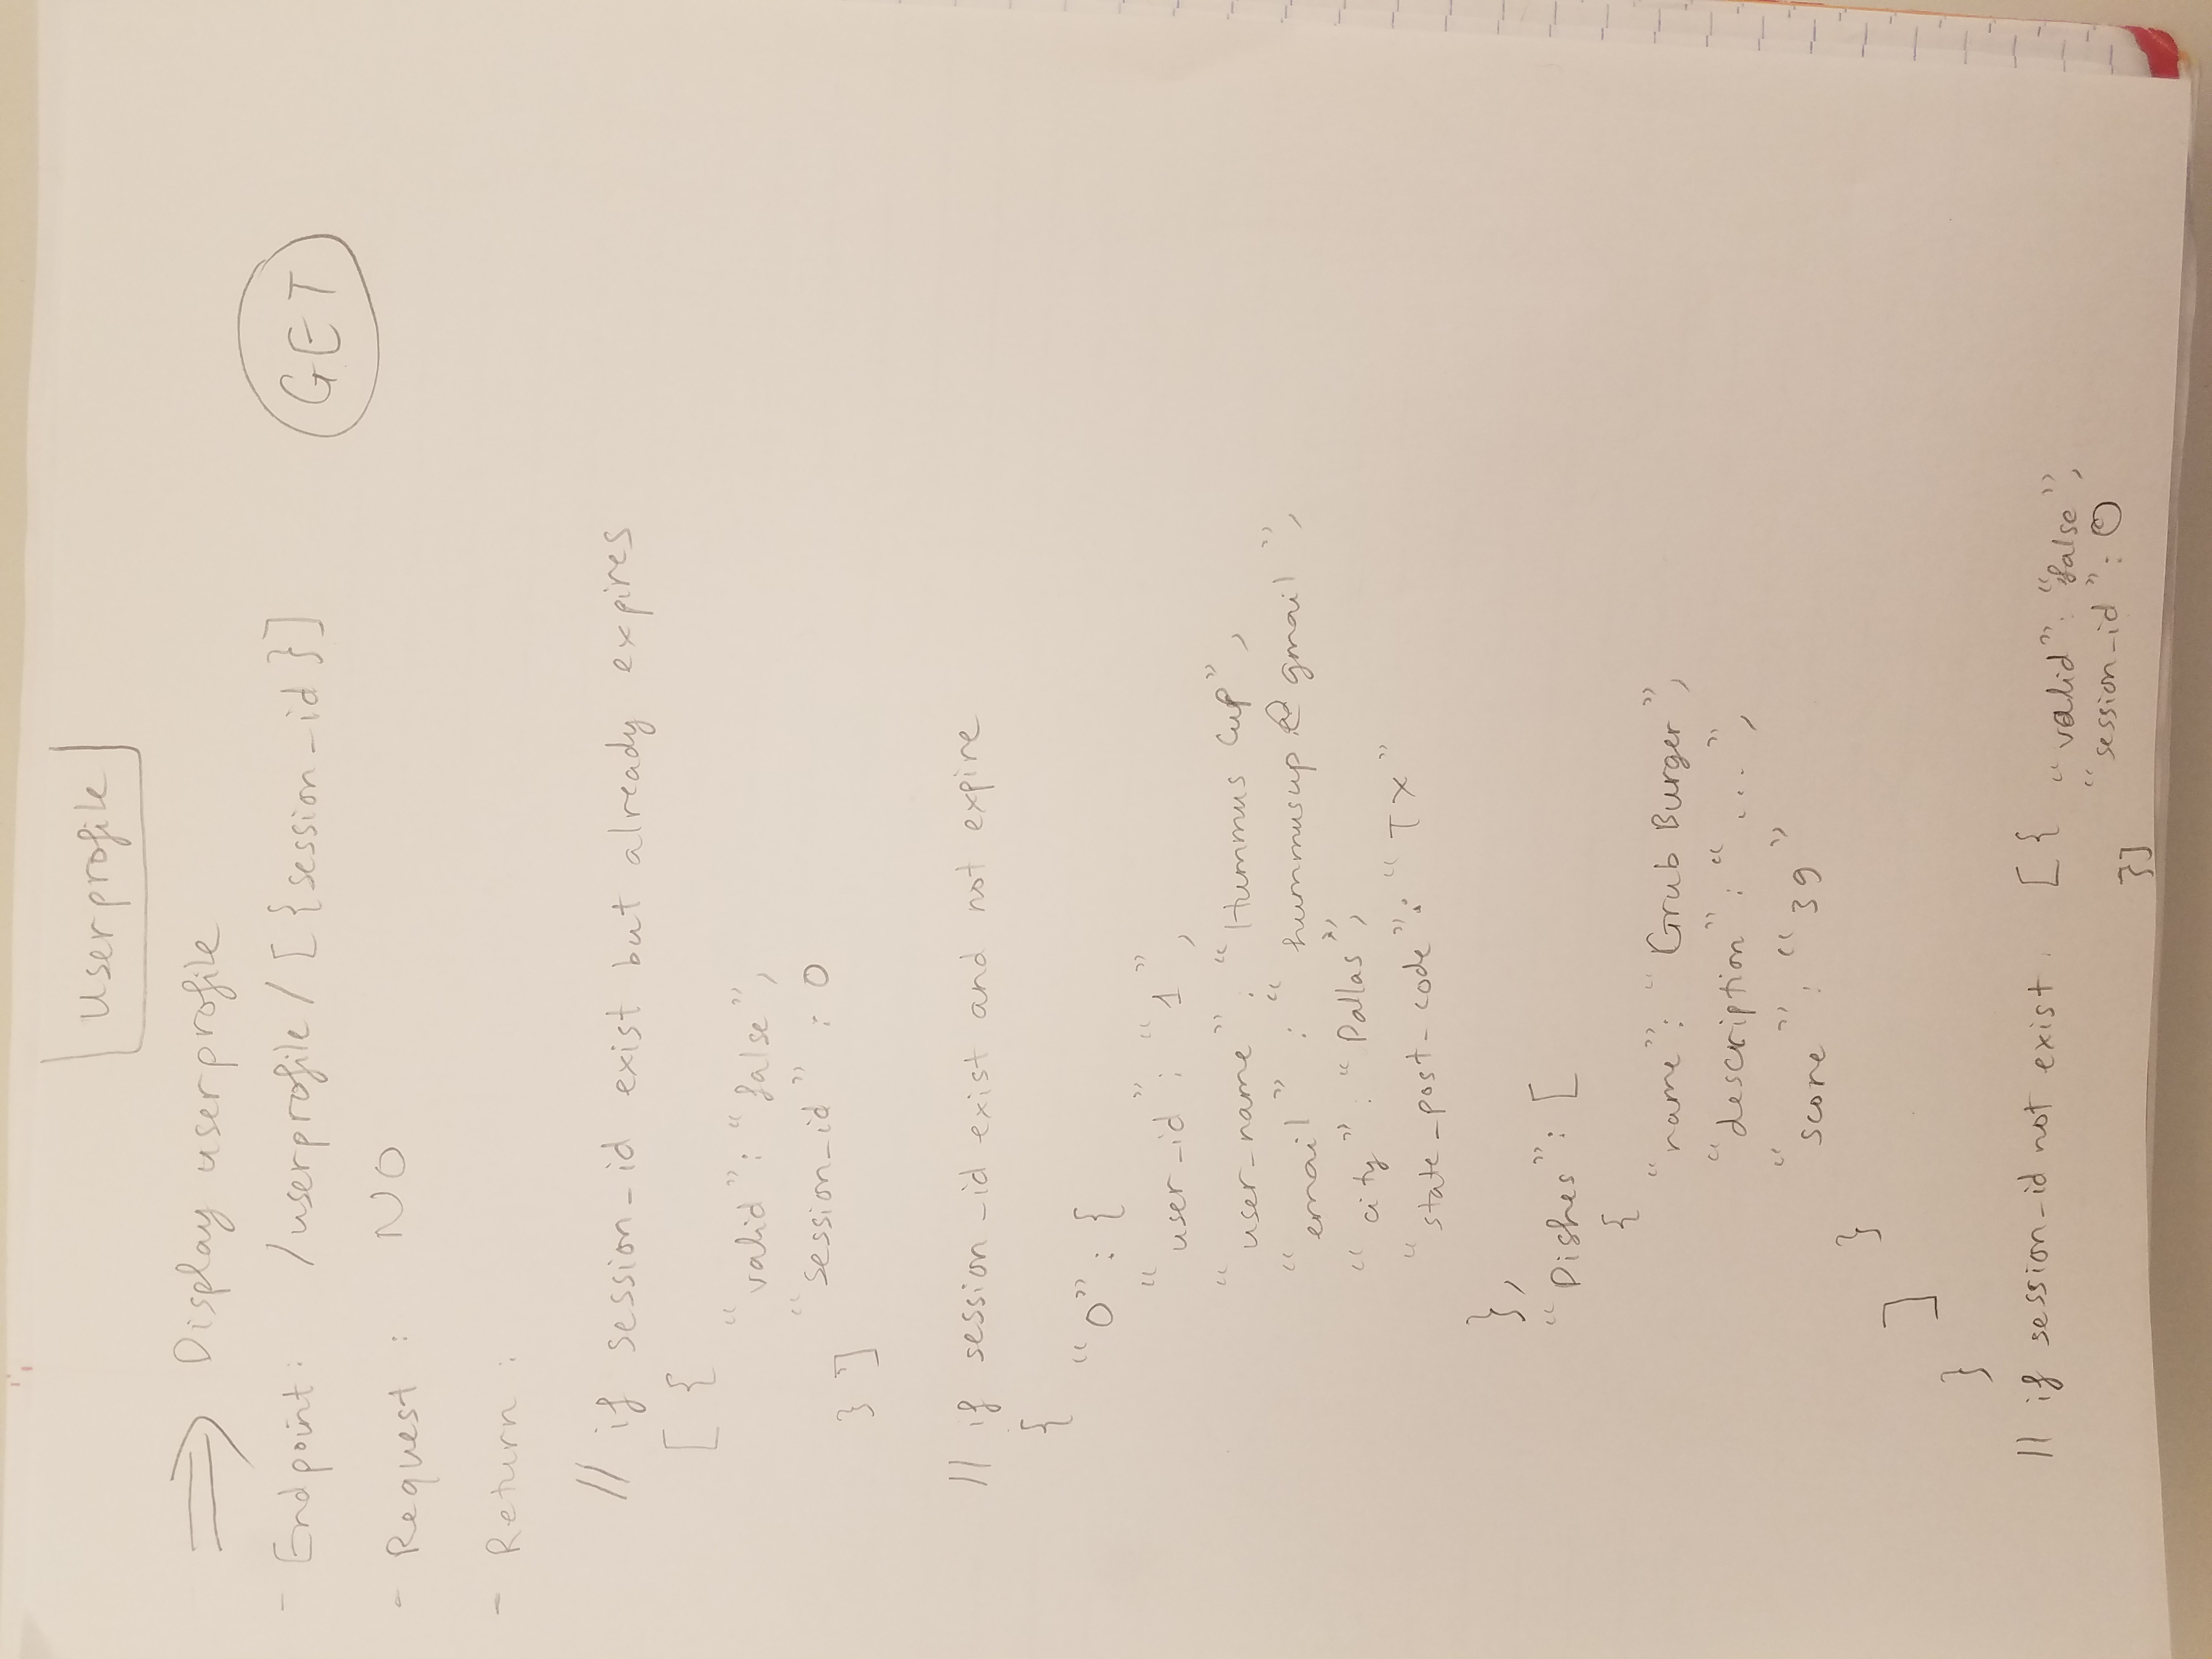 Userprofile
⇒ Display userprofile
- Endpoint: /userprofile/[{session_id}] GET
- Request: NO
- Return:
// if session_id exist but already expires
[{
"valid": "false",
"session_id": 0
}]
// if session_id exist and not expire
{
"0": {
"user_id": "1",
"user_name": "Hummus Cup",
"email": "hummuscup@gmail",
"city": "Dallas",
"state_post_code": "TX"
},
"Dishes": [
{
"name": "Grub Burger",
"description": "...",
"score": "39"
}
]
}
// if session_id not exist. [{ "valid": "false",
"session_id": 0
}]